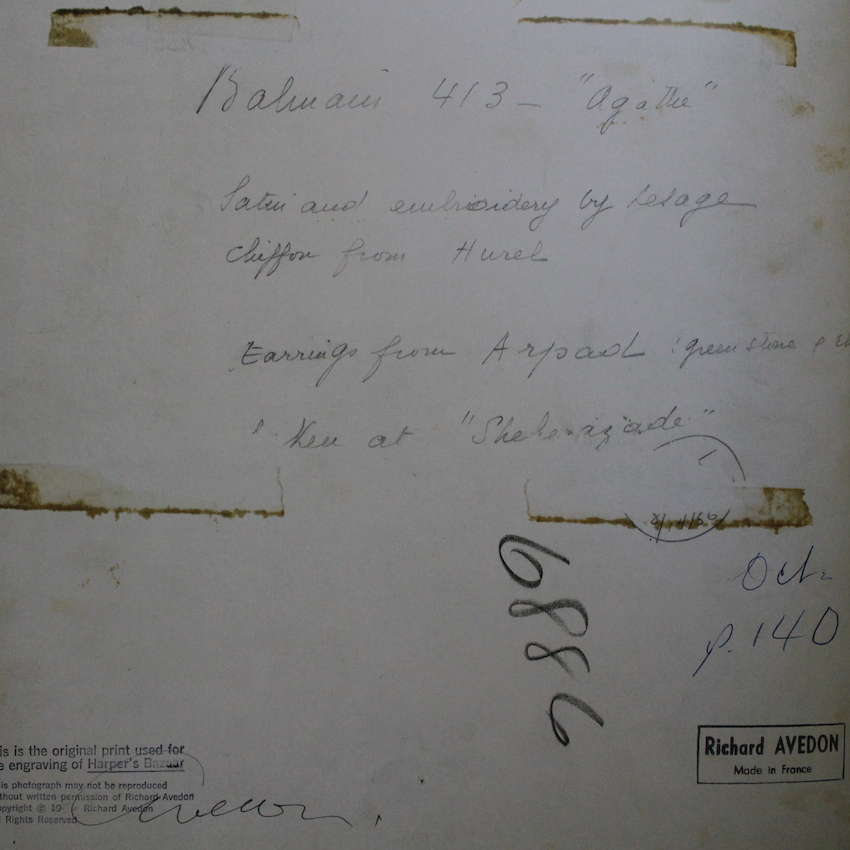 Balmain 413 - "Agathe"
Satin and embroidery by Lesage
Chiffon from Hurel
Earrings from Arpad : green stone
at "Sheherazade"
Oct.
p. 140
6886
is is the original print used for
e engraving of Harper's Bazaar
is photograph may not be reproduced
thout written permission of Richard Avedon
opyright © 19 Richard Avedon
l Rights Reserved
Avedon
Richard AVEDON
Made in France